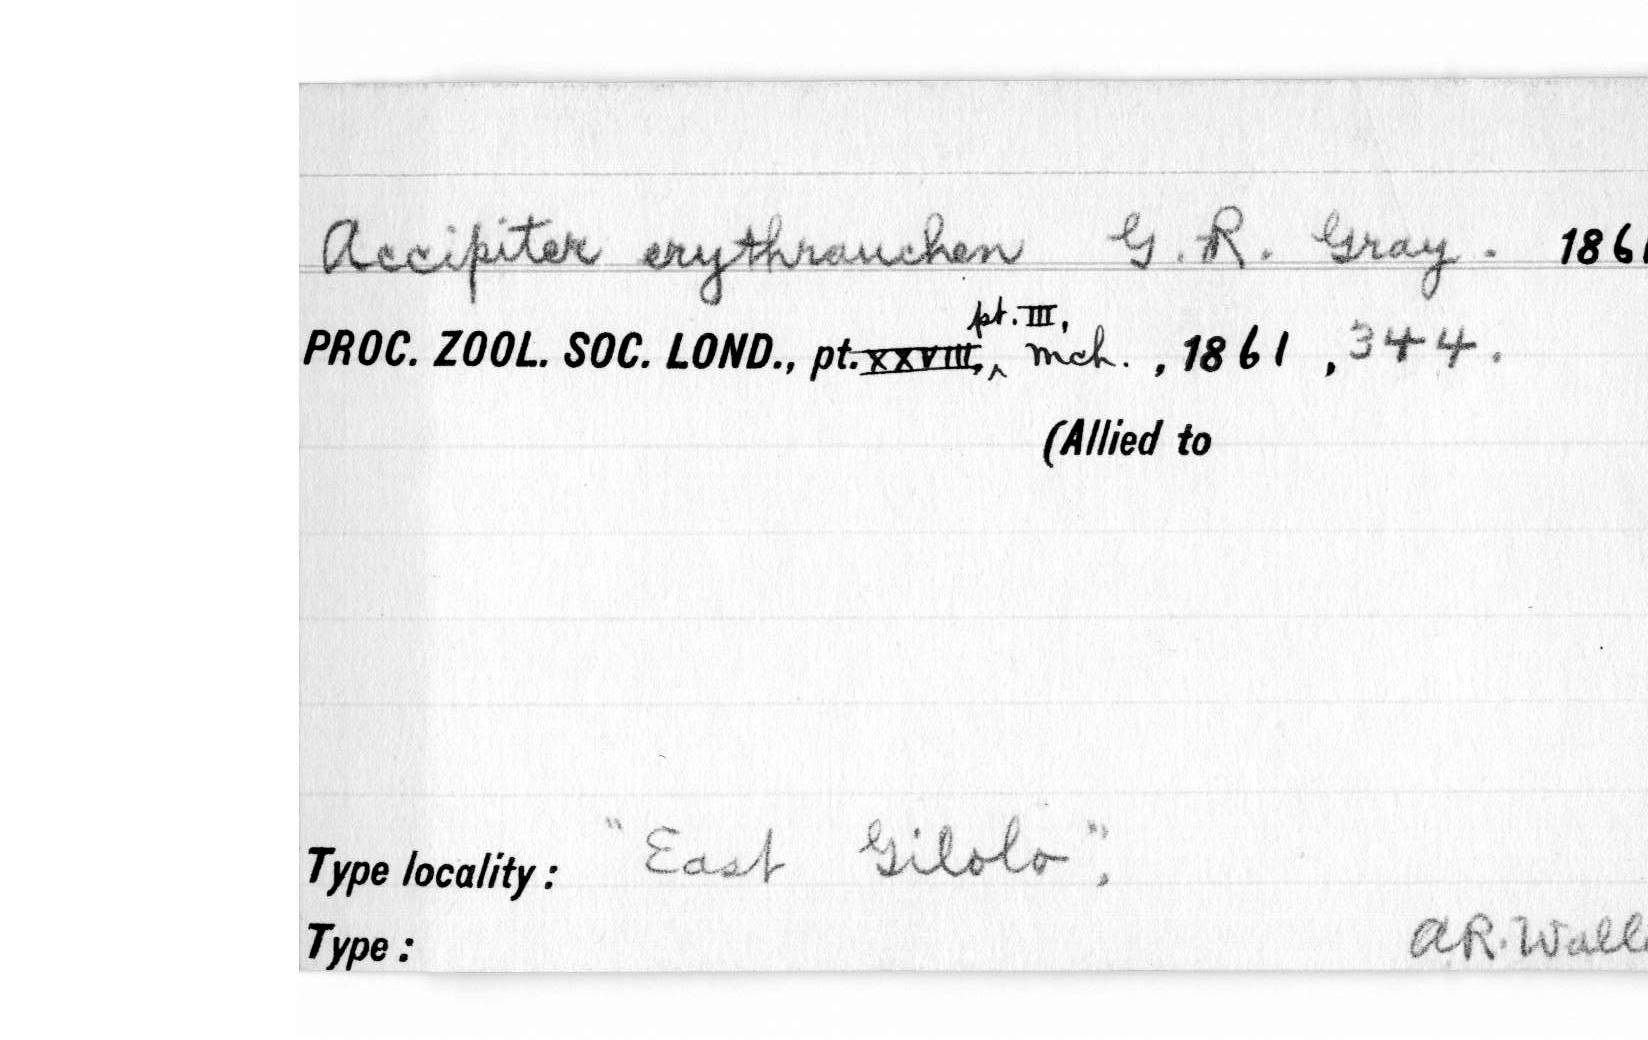 Accipiter erythrauchen G. R. Gray. 1861
pt. III,
PROC. ZOOL. SOC. LOND., pt. XXVIII, ^ Mch. , 1861 , 344.
(Allied to
Type locality : "East Gilolo".
Type :
A.R. Walla